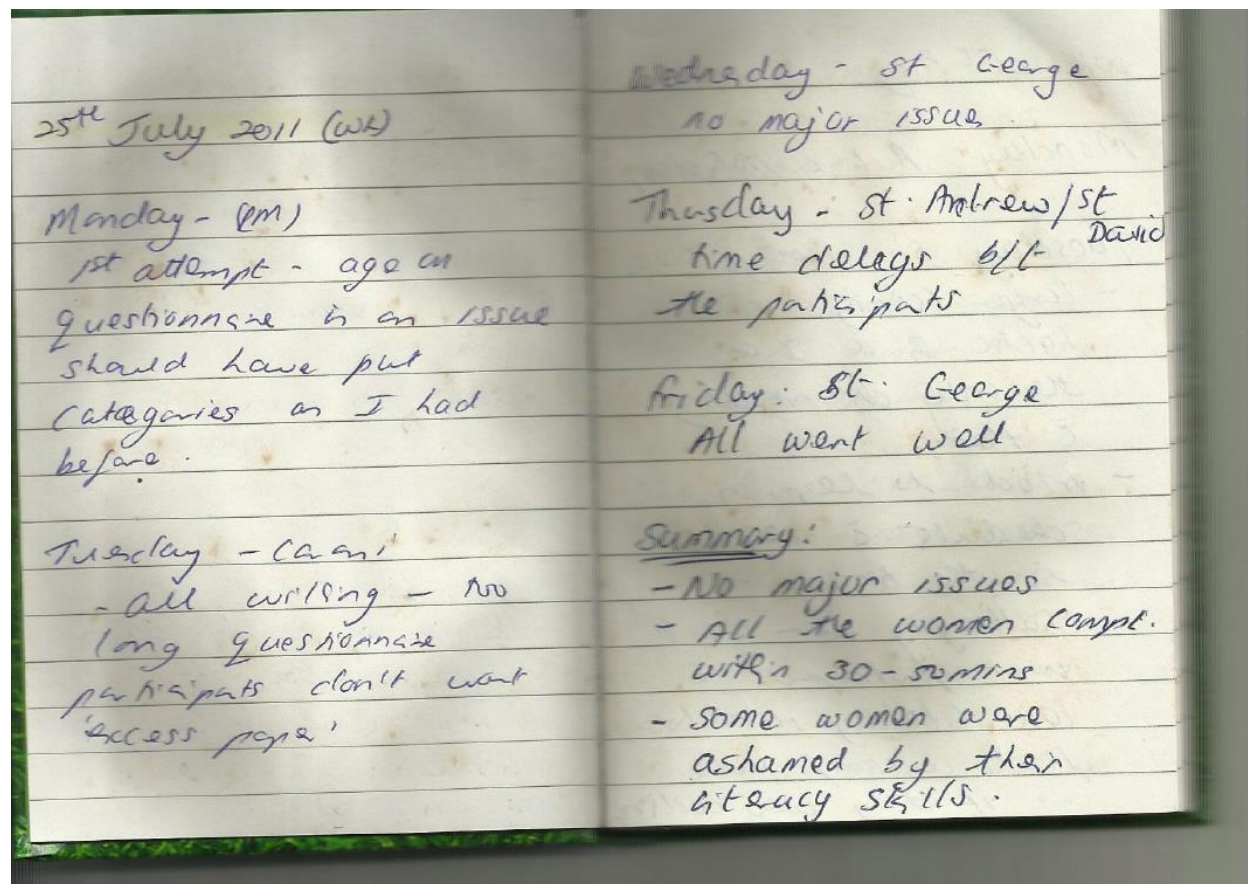 25th July 2011 (wk)
Monday - (pm)
1st attempt - age on
questionnaire is an issue
should have put
categories as I had
before.
Tuesday - Caroni
- all willing - No
long questionnaire
participants don't want
'excess paper'
Wednesday - St George
no major issue.
Thusday - St. Andrew/St
David
time delays b/t
the participants
Friday: St. George
All went well
Summary:
- No major issues
- All the women compt.
within 30-50mins
- Some women were
ashamed by their
literacy skills.